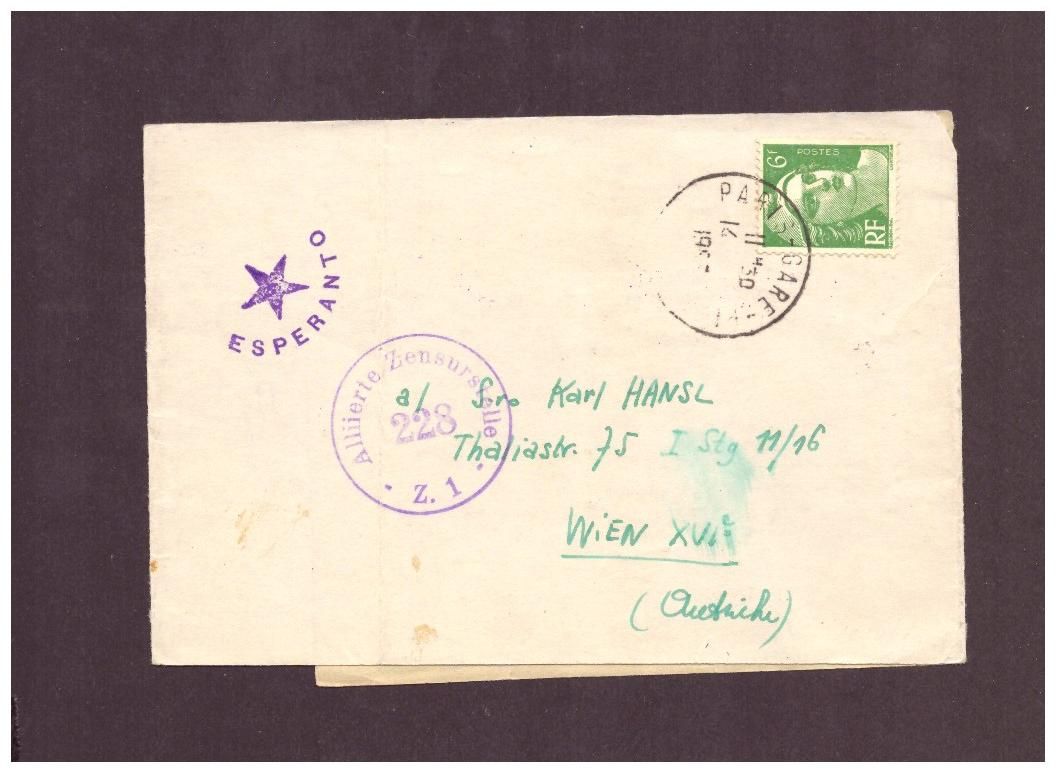 6F
POSTES
RF
PARIS-GARE
11H30
14
ESPERANTO
Alliierte Zensurstelle
228
Z. 1
a/ Sro Karl HANSL
Thaliastr. 75 I Stg 11/16
WiEN XVIe
(Autriche)